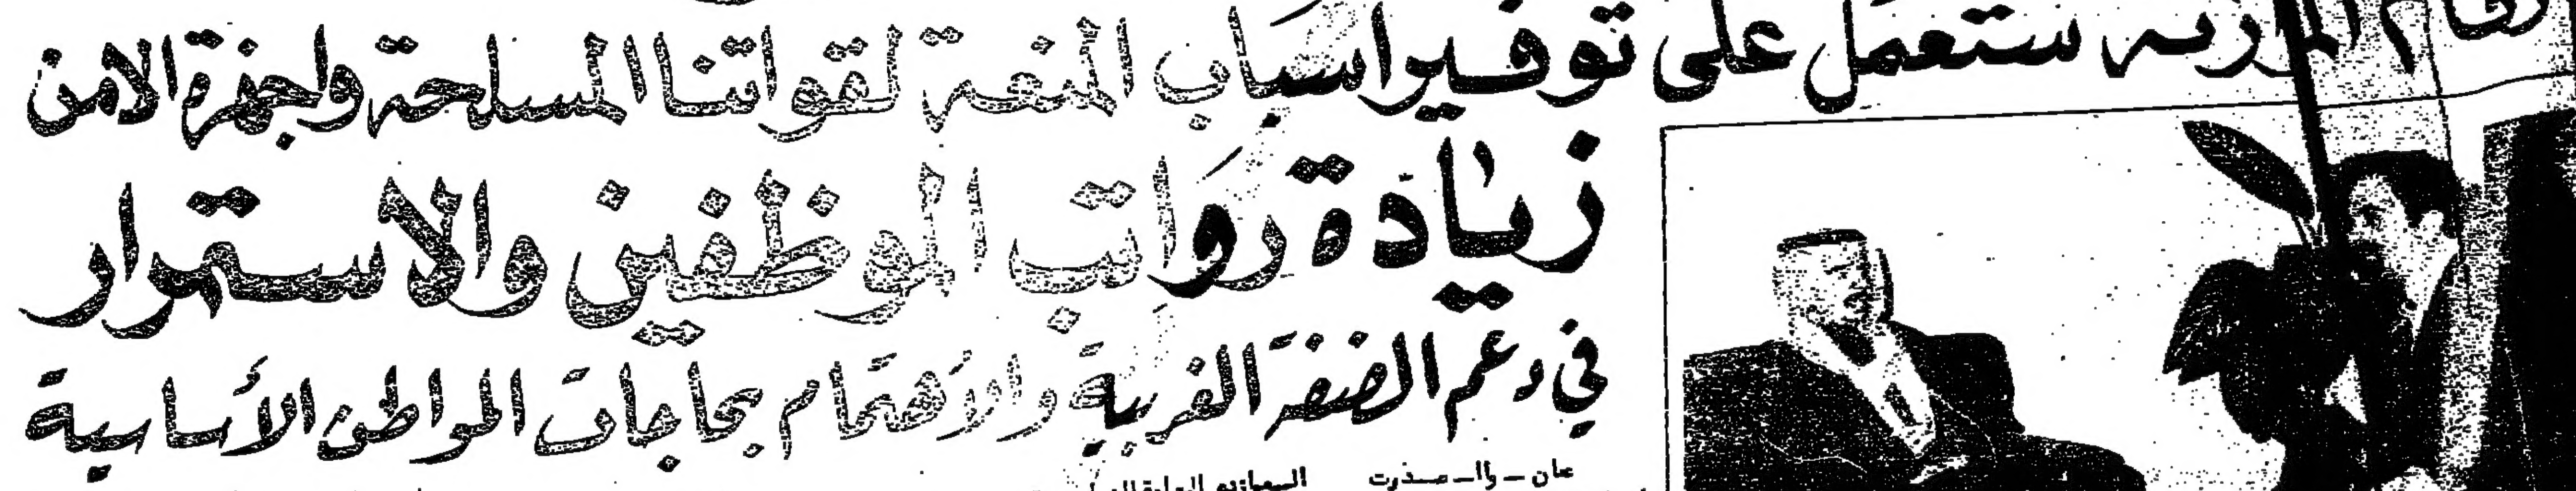 ستعمل على توفير اسباب المنعة لقواتنا المسلحة واجهزة الامن
زيادة رواتب الموظفين والاستمرار
في دعم الضفة الغربية والاهتمام بحاجات المواطن الأساسية